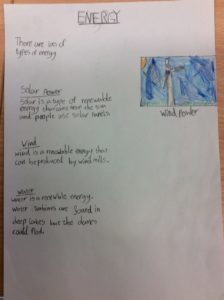 ENERGY
There are lots of
types of energy
Solar Power
Solar is a type of renewable
energy that comes from the sun
and people use solar panels.
Wind Power
Wind
wind is a renewable energy that
can be produced by wind mills.
water
water is a renewable energy.
water turbines are found in
deep lakes but the dames
could flod.